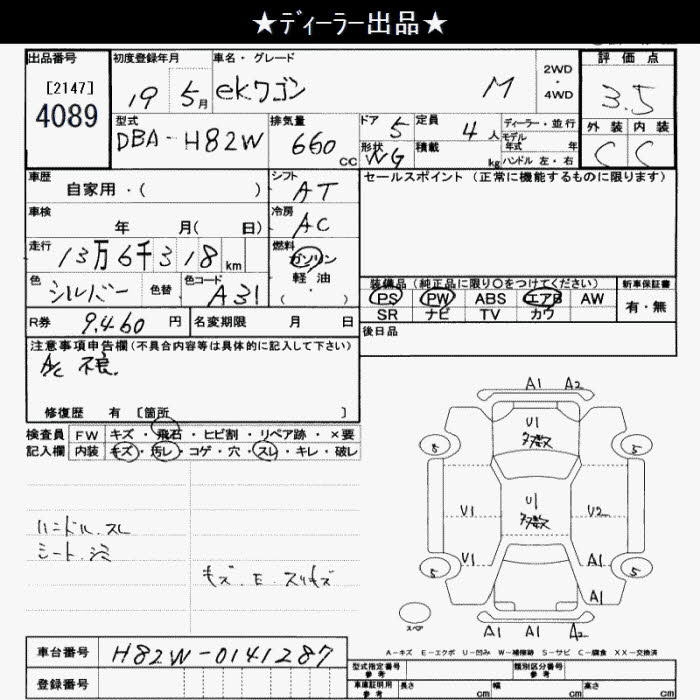 ★ディーラー出品★
出品番号 初度登録年月 車名・グレード 2WD・4WD 評価点
[2147] 4089 19 5月 ekワゴン M 3.5
型式 排気量 ドア 定員 ディーラー・並行 外装 内装
DBA-H82W 660 CC 5 4人 モデル年式 年 C C
形状 WG 積載 kg ハンドル 左・右
車歴 シフト セールスポイント(正常に機能するものに限ります)
自家用・( ) AT
車検 冷房
年 月( 日) AC
走行 燃料
13万6千318km ガソリン
色 色替 色コード 軽油
シルバー A31 ( ・ )
装備品(純正品に限り○をつけてください) 新車保証書
PS PW ABS エアB AW 有・無
SR ナビ TV カワ
R券 9,460円 名変期限 月 日
後日品
注意事項申告欄(不具合内容等は具体的に記入して下さい)
A/C 不良.
修復歴 有 〔箇所 〕
検査員 FW キズ・飛石・ヒビ割・リペア跡・×要
記入欄 内装 キズ・汚レ・コゲ・穴・スレ・キレ・破レ
ハンドル.スレ
シート.汚
キズ.E.スリキズ
A1 A2
U1 多数
5 5
U1 U1 多数 U2
U1 A1
5 5
A1
スペア
A1 A1 A2
A-キズ E-エクボ U-凹み W-補修跡 S-サビ C-腐食 XX-交換済
車台番号 H82W-0141287
型式指定番号 参考 類別区分番号 参考
登録番号
車庫証明用 参考 長さ cm 幅 cm 高さ cm